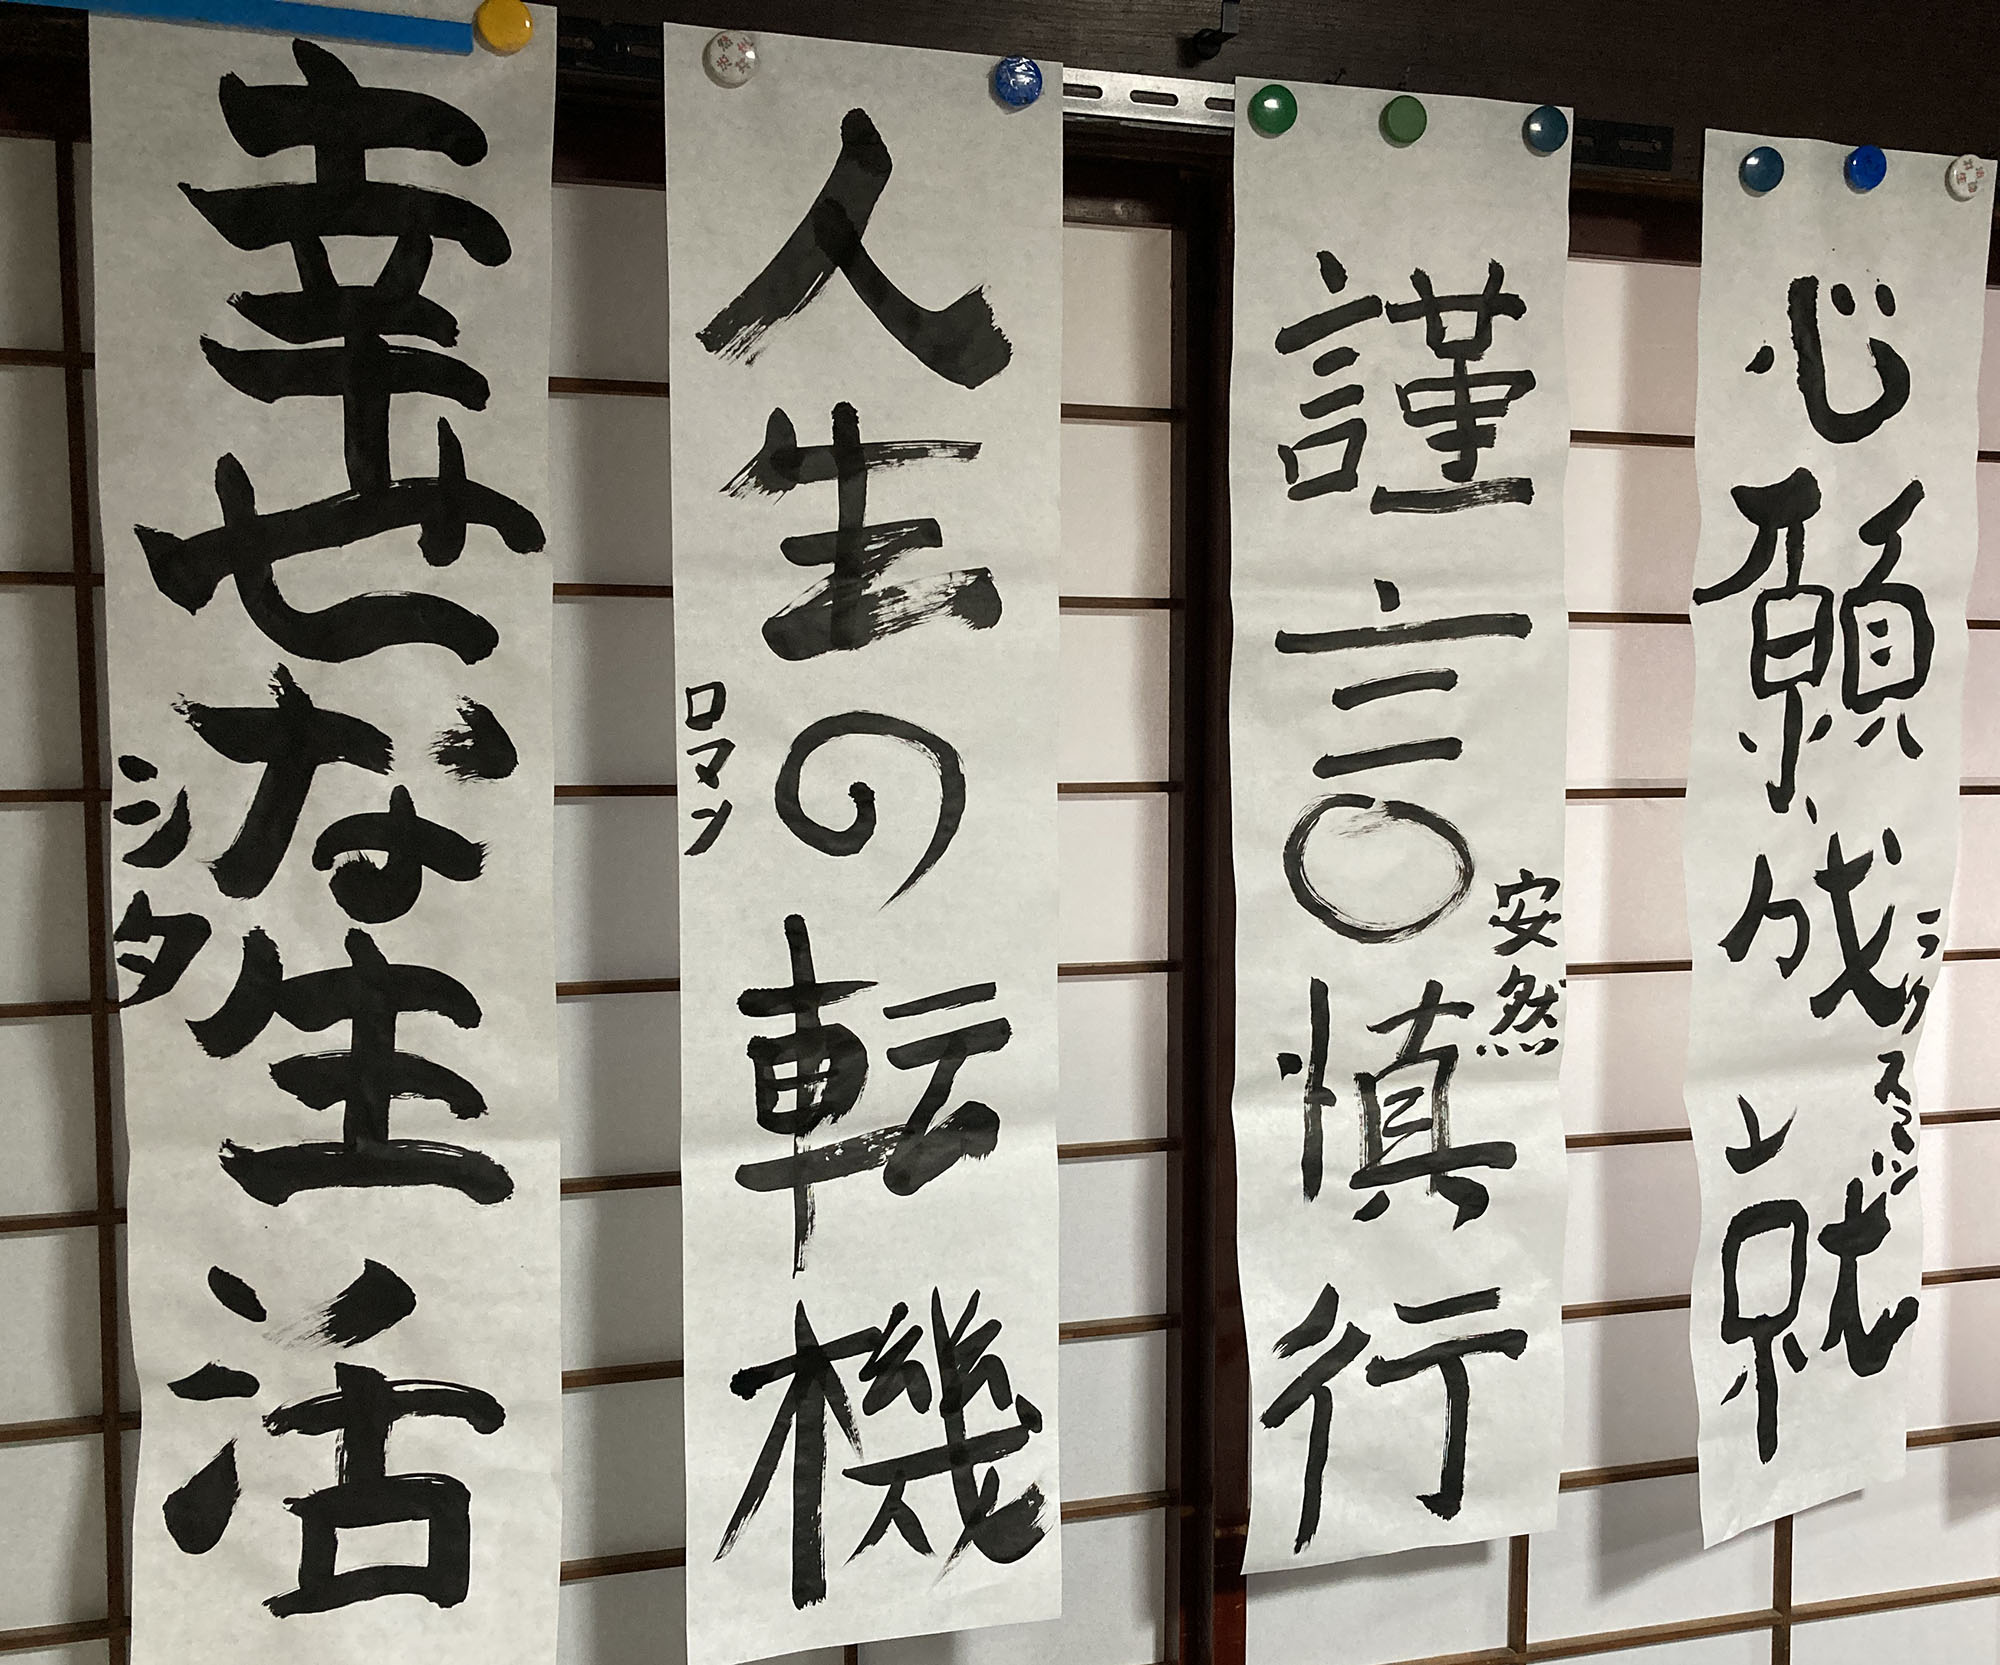 心願成就
謹言〇慎行
安然
人生の転機
ロマン
幸せな生活
シタ